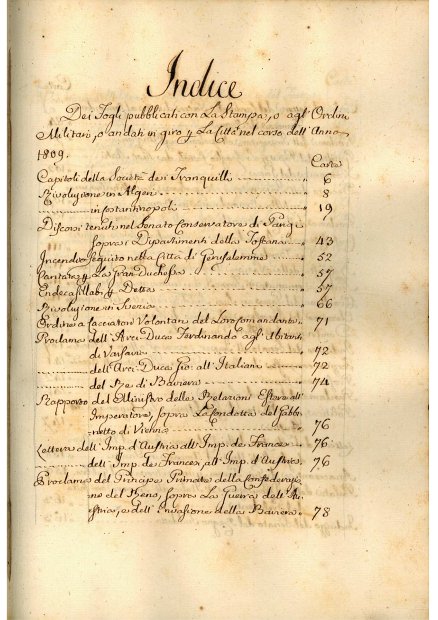 Indice
Dei Fogli pubblicati con La Stampa, o agl' Ordini
Militari, o andati in giro p La Città nel corso dell' Anno
1809.
Carte
Capitoli della Società dei Tranquilli 6
Rivoluzione in Algeri 8
in Costantinopoli 19
Discorsi tenuti nel Senato Conservatore di Parigi
sopra i Dipartimenti della Toscana 43
Incendio seguito nella Città di Gerusalemme 52
Cantata p La Gran Duchessa 57
Endecasillabi p Detta 57
Rivoluzione in Svezia 66
Ordine a Cacciatori Volontari del Loro Comandante 71
Proclama dell' Arci-Duca Ferdinando agl' Abitanti
di Varsavia 72
dell' Arci-Duca Gio: all' Italiani 72
del Re di Baviera 74
Rapporto del Ministro delle Relazioni Estere all'
Imperatore, sopra La Condotta del Gabi-
netto di Vienna 76
Lettera dell' Imp. d'Austria all' Imp. de Francesi 76
dell' Imp. de Francesi all' Imp. d'Austria 76
Proclama del Principe Primate della Confederazi-
one del Reno, sopra La Guerra dell' Au
stria, e dell' Invasione della Baviera 78